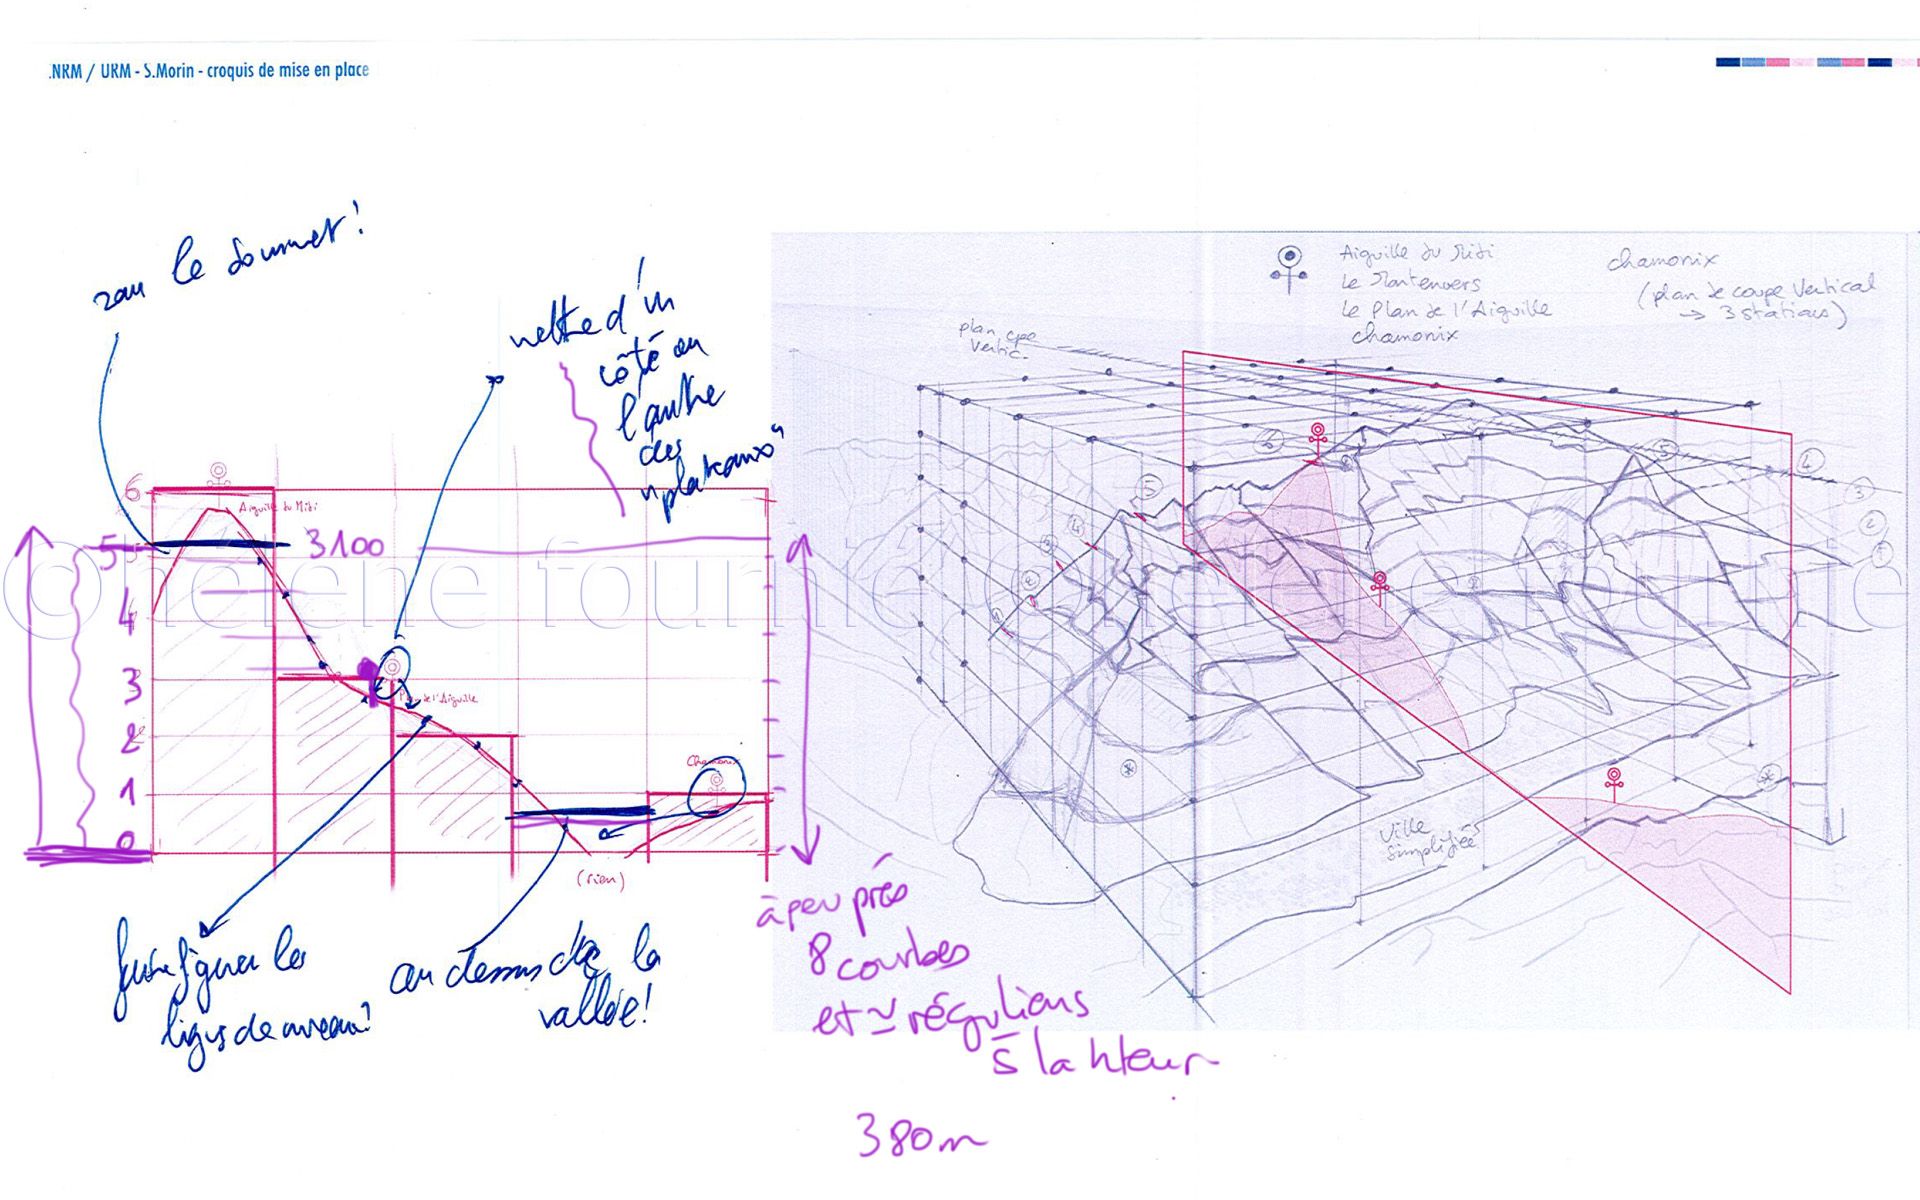 .NRM / URM - S.Morin - croquis de mise en place
le sommet !
mettre d'un
côté ou
l'autre
des
"plateaux"
Aiguille du Midi
Le Montenvers
Le Plan de l'Aiguille
chamonix
chamonix
(plan de coupe vertical
→ 3 stations)
plan cpe
vertic.
6
Aiguille du Midi
5
3100
4
3
Plan de l'Aiguille
2
1
Chamonix
0
(rien)
© hélène fournié
faire figurer les
lignes de niveau!
au dessus de la
vallée!
à peu près
8 courbes
et ≃ réguliers
à la hteur
380m
ville
simplifiée
6
5
4
3
2
1
5
4
3
2
1
*
*